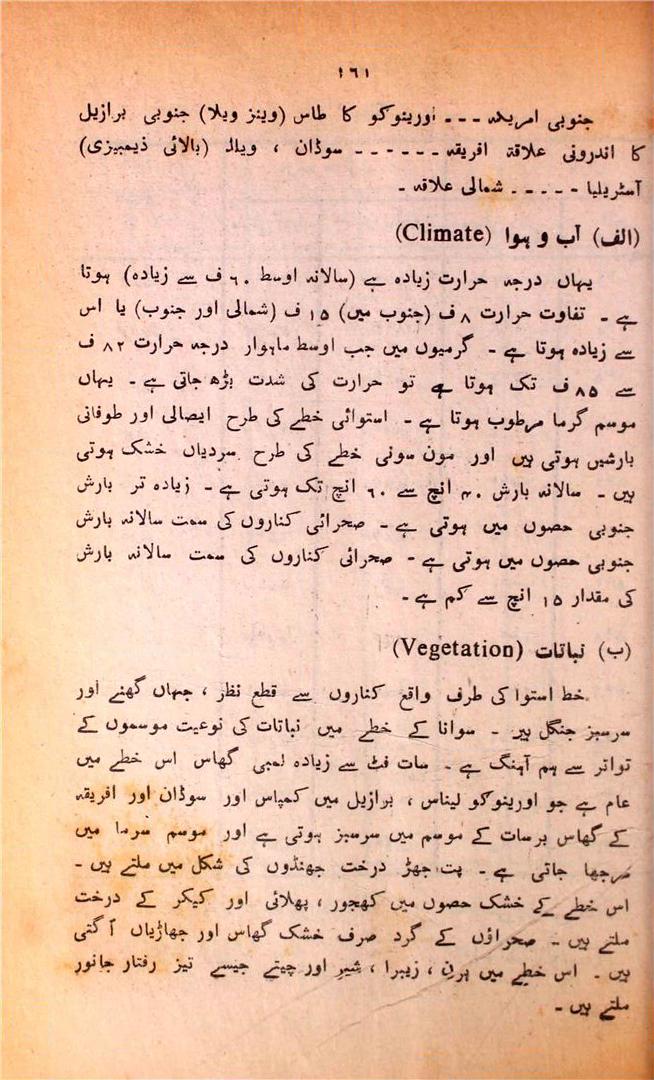 ۱۶۱
جنوبی امریکہ --- اورینوکو کا طاس (وینز ویلا) جنوبی برازیل
کا اندرونی علاقہ افریقہ ------ سوڈان ، ویلڈ (بالائی ذیمبیزی)
آسٹریلیا ----- شمالی علاقہ -
(الف) آب و ہوا (Climate)
یہاں درجہ حرارت زیادہ ہے (سالانہ اوسط ۶۰ ف سے زیادہ) ہوتا
ہے - تفاوت حرارت ۸ ف (جنوب میں) ۱۵ ف (شمالی اور جنوب) یا اس
سے زیادہ ہوتا ہے - گرمیوں میں جب اوسط ماہوار درجہ حرارت ۸۲ ف
سے ۸۵ ف تک ہوتا ہے تو حرارت کی شدت بڑھ جاتی ہے - یہاں
موسم گرما مرطوب ہوتا ہے - استوائی خطے کی طرح ایصالی اور طوفانی
بارشیں ہوتی ہیں اور مون سونی خطے کی طرح سردیاں خشک ہوتی
ہیں - سالانہ بارش ۴۰ انچ سے ۶۰ انچ تک ہوتی ہے - زیادہ تر بارش
جنوبی حصوں میں ہوتی ہے - صحرائی کناروں کی سمت سالانہ بارش
جنوبی حصوں میں ہوتی ہے - صحرائی کناروں کی سمت سالانہ بارش
کی مقدار ۱۵ انچ سے کم ہے -
(ب) نباتات (Vegetation)
خط استوا کی طرف واقع کناروں سے قطع نظر ، جہاں گھنے اور
سرسبز جنگل ہیں - سوانا کے خطے میں نباتات کی نوعیت موسموں کے
تواتر سے ہم آہنگ ہے - سات فٹ سے زیادہ لمبی گھاس اس خطے میں
عام ہے جو اورینوکو لیناس ، برازیل میں کمپاس اور سوڈان اور افریقہ
کے گھاس برسات کے موسم میں سرسبز ہوتی ہے اور موسم سرما میں
مرجھا جاتی ہے - پت جھڑ درخت جھنڈوں کی شکل میں ملتے ہیں -
اس خطے کے خشک حصوں میں کھجور ، پھلائی اور کیکر کے درخت
ملتے ہیں - صحراؤں کے گرد صرف خشک گھاس اور جھاڑیاں اُگتی
ہیں - اس خطے میں ہرن ، زیبرا ، شیر اور چیتے جیسے تیز رفتار جانور
ملتے ہیں -